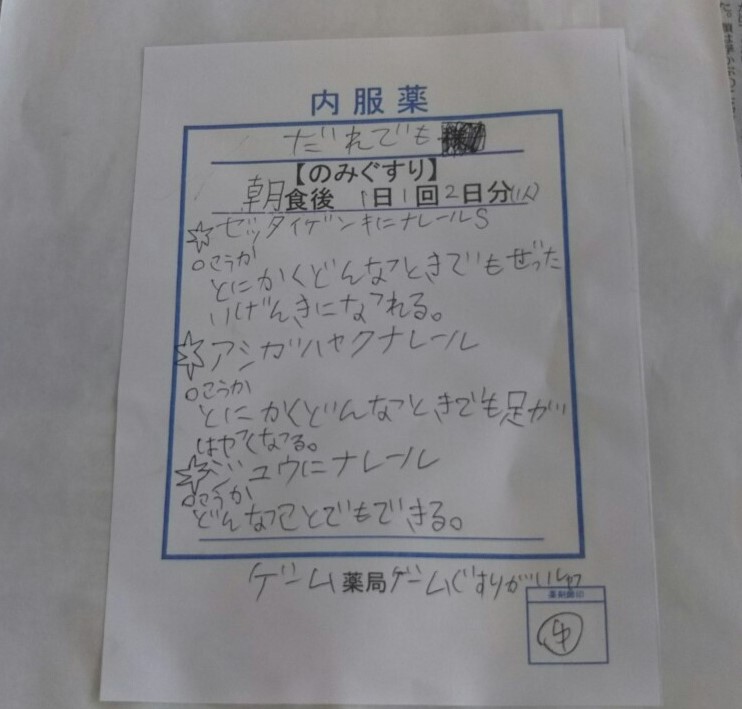 内服薬
だれでも
【のみぐすり】
朝食後 1日1回2日分(1人)
☆ゼッタイゲンキにナレールS
○こうか
とにかくどんなときでもぜった
いげんきになれる。
☆アシガハヤクナレール
○こうか
とにかくどんなときでも足が
はやくなる。
☆ジュウにナレール
○こうか
どんなことでもできる。
ゲーム薬局ゲームぐすりがいしゃ
薬剤師印